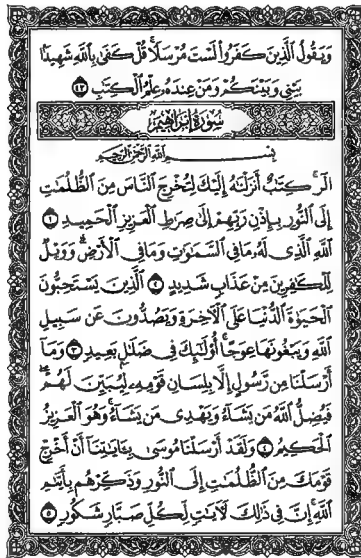 وَيَقُولُ ٱلَّذِينَ كَفَرُوا۟ لَسْتَ مُرْسَلًا ۚ قُلْ كَفَىٰ بِٱللَّهِ شَهِيدًۢا
بَيْنِي وَبَيْنَكُمْ وَمَنْ عِندَهُۥ عِلْمُ ٱلْكِتَٰبِ ٤٣
سُورَةُ إِبْرَاهِيمَ
بِسْمِ ٱللَّهِ ٱلرَّحْمَٰنِ ٱلرَّحِيمِ
الٓر ۚ كِتَٰبٌ أَنزَلْنَٰهُ إِلَيْكَ لِتُخْرِجَ ٱلنَّاسَ مِنَ ٱلظُّلُمَٰتِ
إِلَى ٱلنُّورِ بِإِذْنِ رَبِّهِمْ إِلَىٰ صِرَٰطِ ٱلْعَزِيزِ ٱلْحَمِيدِ ١
ٱللَّهِ ٱلَّذِى لَهُۥ مَا فِى ٱلسَّمَٰوَٰتِ وَمَا فِى ٱلْأَرْضِ ۗ وَوَيْلٌ
لِّلْكَٰفِرِينَ مِنْ عَذَابٍ شَدِيدٍ ٢ ٱلَّذِينَ يَسْتَحِبُّونَ
ٱلْحَيَوٰةَ ٱلدُّنْيَا عَلَى ٱلْءَاخِرَةِ وَيَصُدُّونَ عَن سَبِيلِ
ٱللَّهِ وَيَبْغُونَهَا عِوَجًا ۚ أُو۟لَٰٓئِكَ فِى ضَلَٰلٍۭ بَعِيدٍ ٣ وَمَآ
أَرْسَلْنَا مِن رَّسُولٍ إِلَّا بِلِسَانِ قَوْمِهِۦ لِيُبَيِّنَ لَهُمْ ۖ
فَيُضِلُّ ٱللَّهُ مَن يَشَآءُ وَيَهْدِى مَن يَشَآءُ ۚ وَهُوَ ٱلْعَزِيزُ
ٱلْحَكِيمُ ٤ وَلَقَدْ أَرْسَلْنَا مُوسَىٰ بِـَٔايَٰتِنَآ أَنْ أَخْرِجْ
قَوْمَكَ مِنَ ٱلظُّلُمَٰتِ إِلَى ٱلنُّورِ وَذَكِّرْهُم بِأَيَّىٰمِ
ٱللَّهِ ۚ إِنَّ فِى ذَٰلِكَ لَءَايَٰتٍ لِّكُلِّ صَبَّارٍ شَكُورٍ ٥